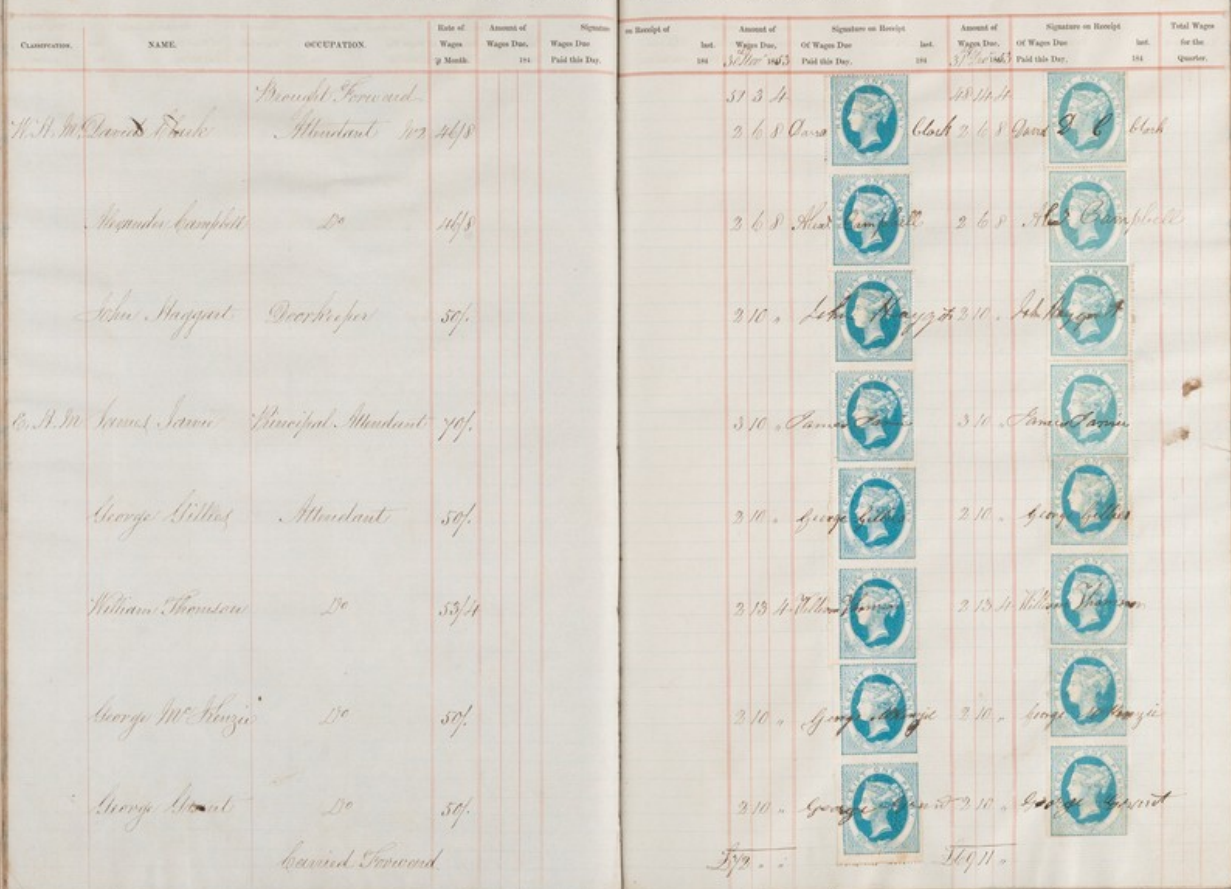 CLASSIFICATION. NAME. OCCUPATION. Rate of Wages ℔ Month. Amount of Wages Due, 184 Signature Wages Due Paid this Day.
on Receipt of last. 184 Amount of Wages Due, 184 Signature on Receipt Of Wages Due last. Paid this Day. 184 Amount of Wages Due, Signature on Receipt Of Wages Due last. Paid this Day. 184 Total Wages for the Quarter.
Brought Forward 51 3 4 48 14 4
W. A. M. David Clark Attendant No 2 46/8 2 6 8 David Clark 2 6 8 David D C Clark
Alexander Campbell Do 46/8 2 6 8 Alexr Campbell 2 6 8 Alexr Campbell
John Haggart Doorkeeper 50/. 2 10 „ John Haggart 2 10 „ John Haggart
E. A. M James Jamie Principal Attendant 70/. 3 10 „ James Jamie 3 10 „ James Jamie
George Gillies Attendant 50/. 2 10 „ George Gillies 2 10 „ George Gillies
William Thomson Do 53/4 2 13 4 William Thomson 2 13 4 William Thomson
George McKenzie Do 50/. 2 10 „ George McKenzie 2 10 „ George McKenzie
George Grant Do 50/. 2 10 „ George Grant 2 10 „ George Grant
Carried Forward £72 „ „ £69 11 „